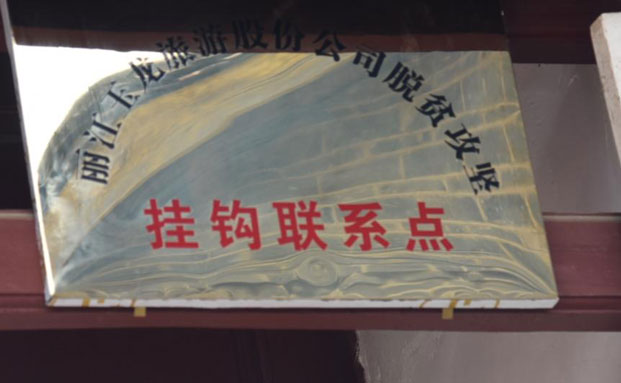 丽江玉龙旅游股份公司脱贫攻坚
挂钩联系点